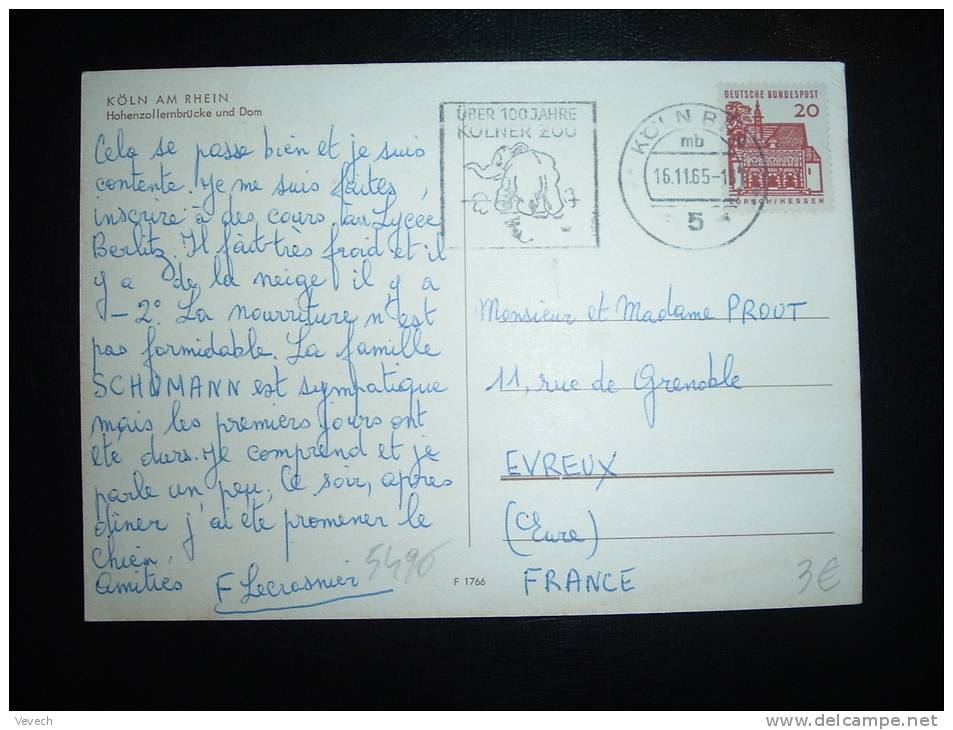 KÖLN AM RHEIN
Hohenzollernbrücke und Dom
Cela se passe bien et je suis
contente. Je me suis faites
inscrire à des cours au Lycée
Berlitz. Il fait très froid et il
y a de la neige il y a
-2°. La nourriture n'est
pas formidable. La famille
SCHUMANN est sympatique
mais les premiers jours ont
été durs. Je comprend et je
parle un peu, Ce soir, après
dîner j'ai été promener le
chien.
Amitiés F Lecrosnier
5490
F 1766
ÜBER 100 JAHRE
KÖLNER ZOO
KÖLN
mb
16.11.65-
5
DEUTSCHE BUNDESPOST
20
LORSCH/HESSEN
Monsieur et Madame PROUT
11, rue de Grenoble
EVREUX
(Eure)
FRANCE
3€
Vevech
www.delcampe.net